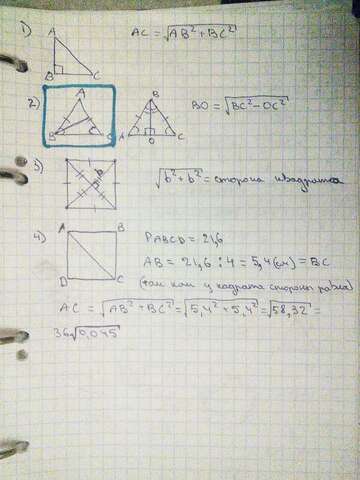 1) A B C AC = √AB² + BC²
2) A B C B A O C BO = √BC² - OC²
3) b b √b² + b² = сторона квадрата
4) A B D C PABCD = 21,6
AB = 21,6 : 4 = 5,4 (см) = BC
(так как у квадрата стороны равны)
AC = √AB² + BC² = √5,4² + 5,4² = √58,32 =
36√0,045